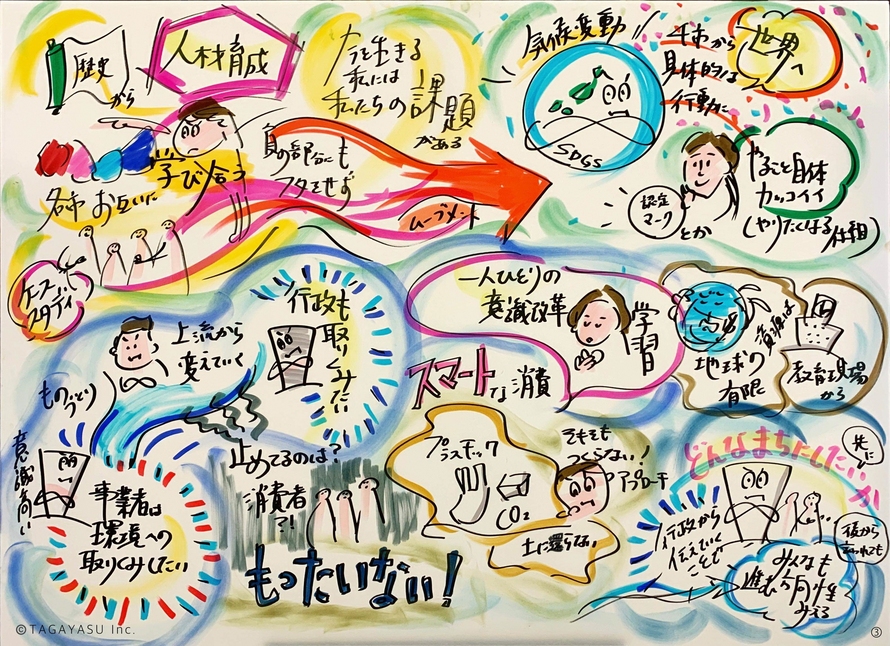 歴史
から
人材育成
今を生きる
私には
私たちの課題
がある
気候変動
SDGs
4市から
世界へ
具体的な
行動に
各市お互いに
学び合う
負の部分にも
フタをせず
ムーブメント
認定
マーク
とか
やること自体
カッコイイ
(やりたくなる体制)
ケース
スタディ
上流から
変えていく
ものづくり
行政も
取りくみたい
一人ひとりの
意識改革
学習
スマートな消費
資源は
地球の
有限
教育現場
から
意識高い
事業者は
環境への
取りくみしたい
止めてるのは?
消費者
?!
もったいない!
プラスチック
CO2
土に還らない
そもそも
つくらない!
アプローチ
どんなまちにしたい
共に
行政から
伝えていく
ことで
みんなも
進む方向性
みえる
©TAGAYASU Inc.
③